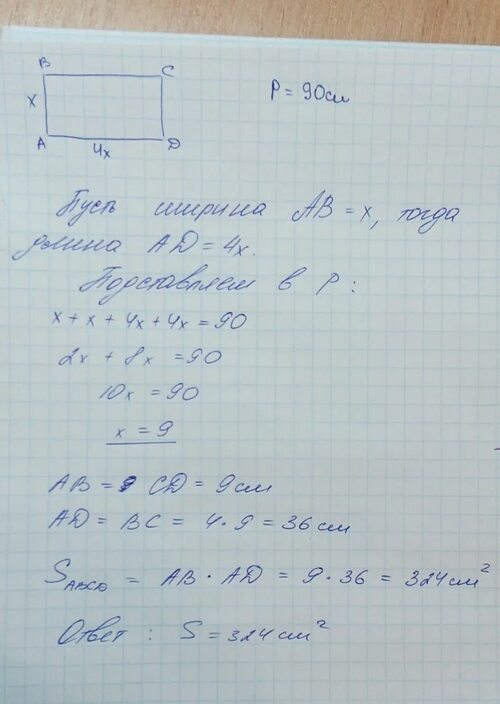 B C
P = 90см
x
A D
4x
Пусть ширина AB = x, тогда
длина AD = 4x.
Подставляем в P :
x + x + 4x + 4x = 90
2x + 8x = 90
10x = 90
x = 9
AB = CD = 9см
AD = BC = 4 · 9 = 36см
S ABCD = AB · AD = 9 · 36 = 324см²
Ответ : S = 324см²